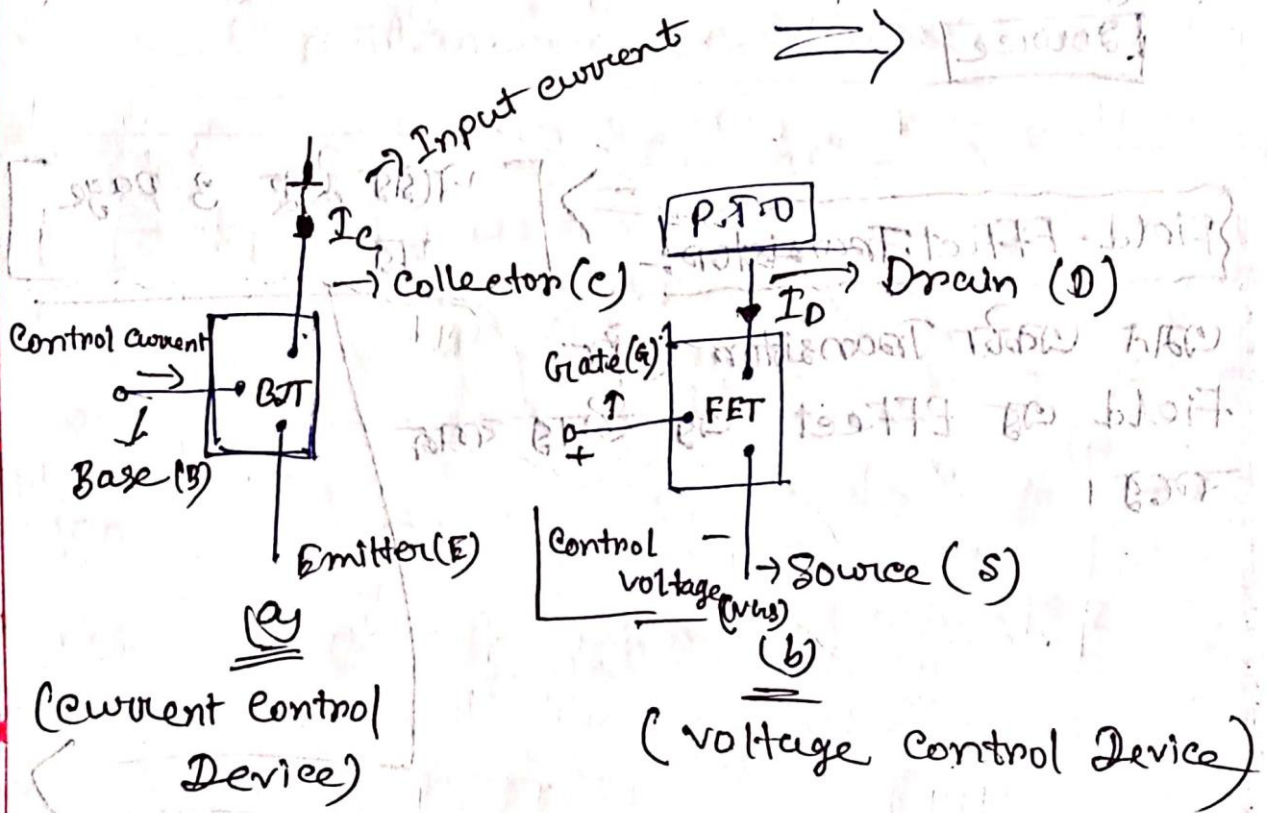 Input current
I_C
→ Collector (C)
Control current
BJT
Base (B)
Emitter (E)
(a)
(Current Control
Device)
P.T.O
I_D
Drain (D)
Gate (G)
FET
+
Control
voltage (VGS)
-
→ Source (S)
(b)
(voltage Control Device)